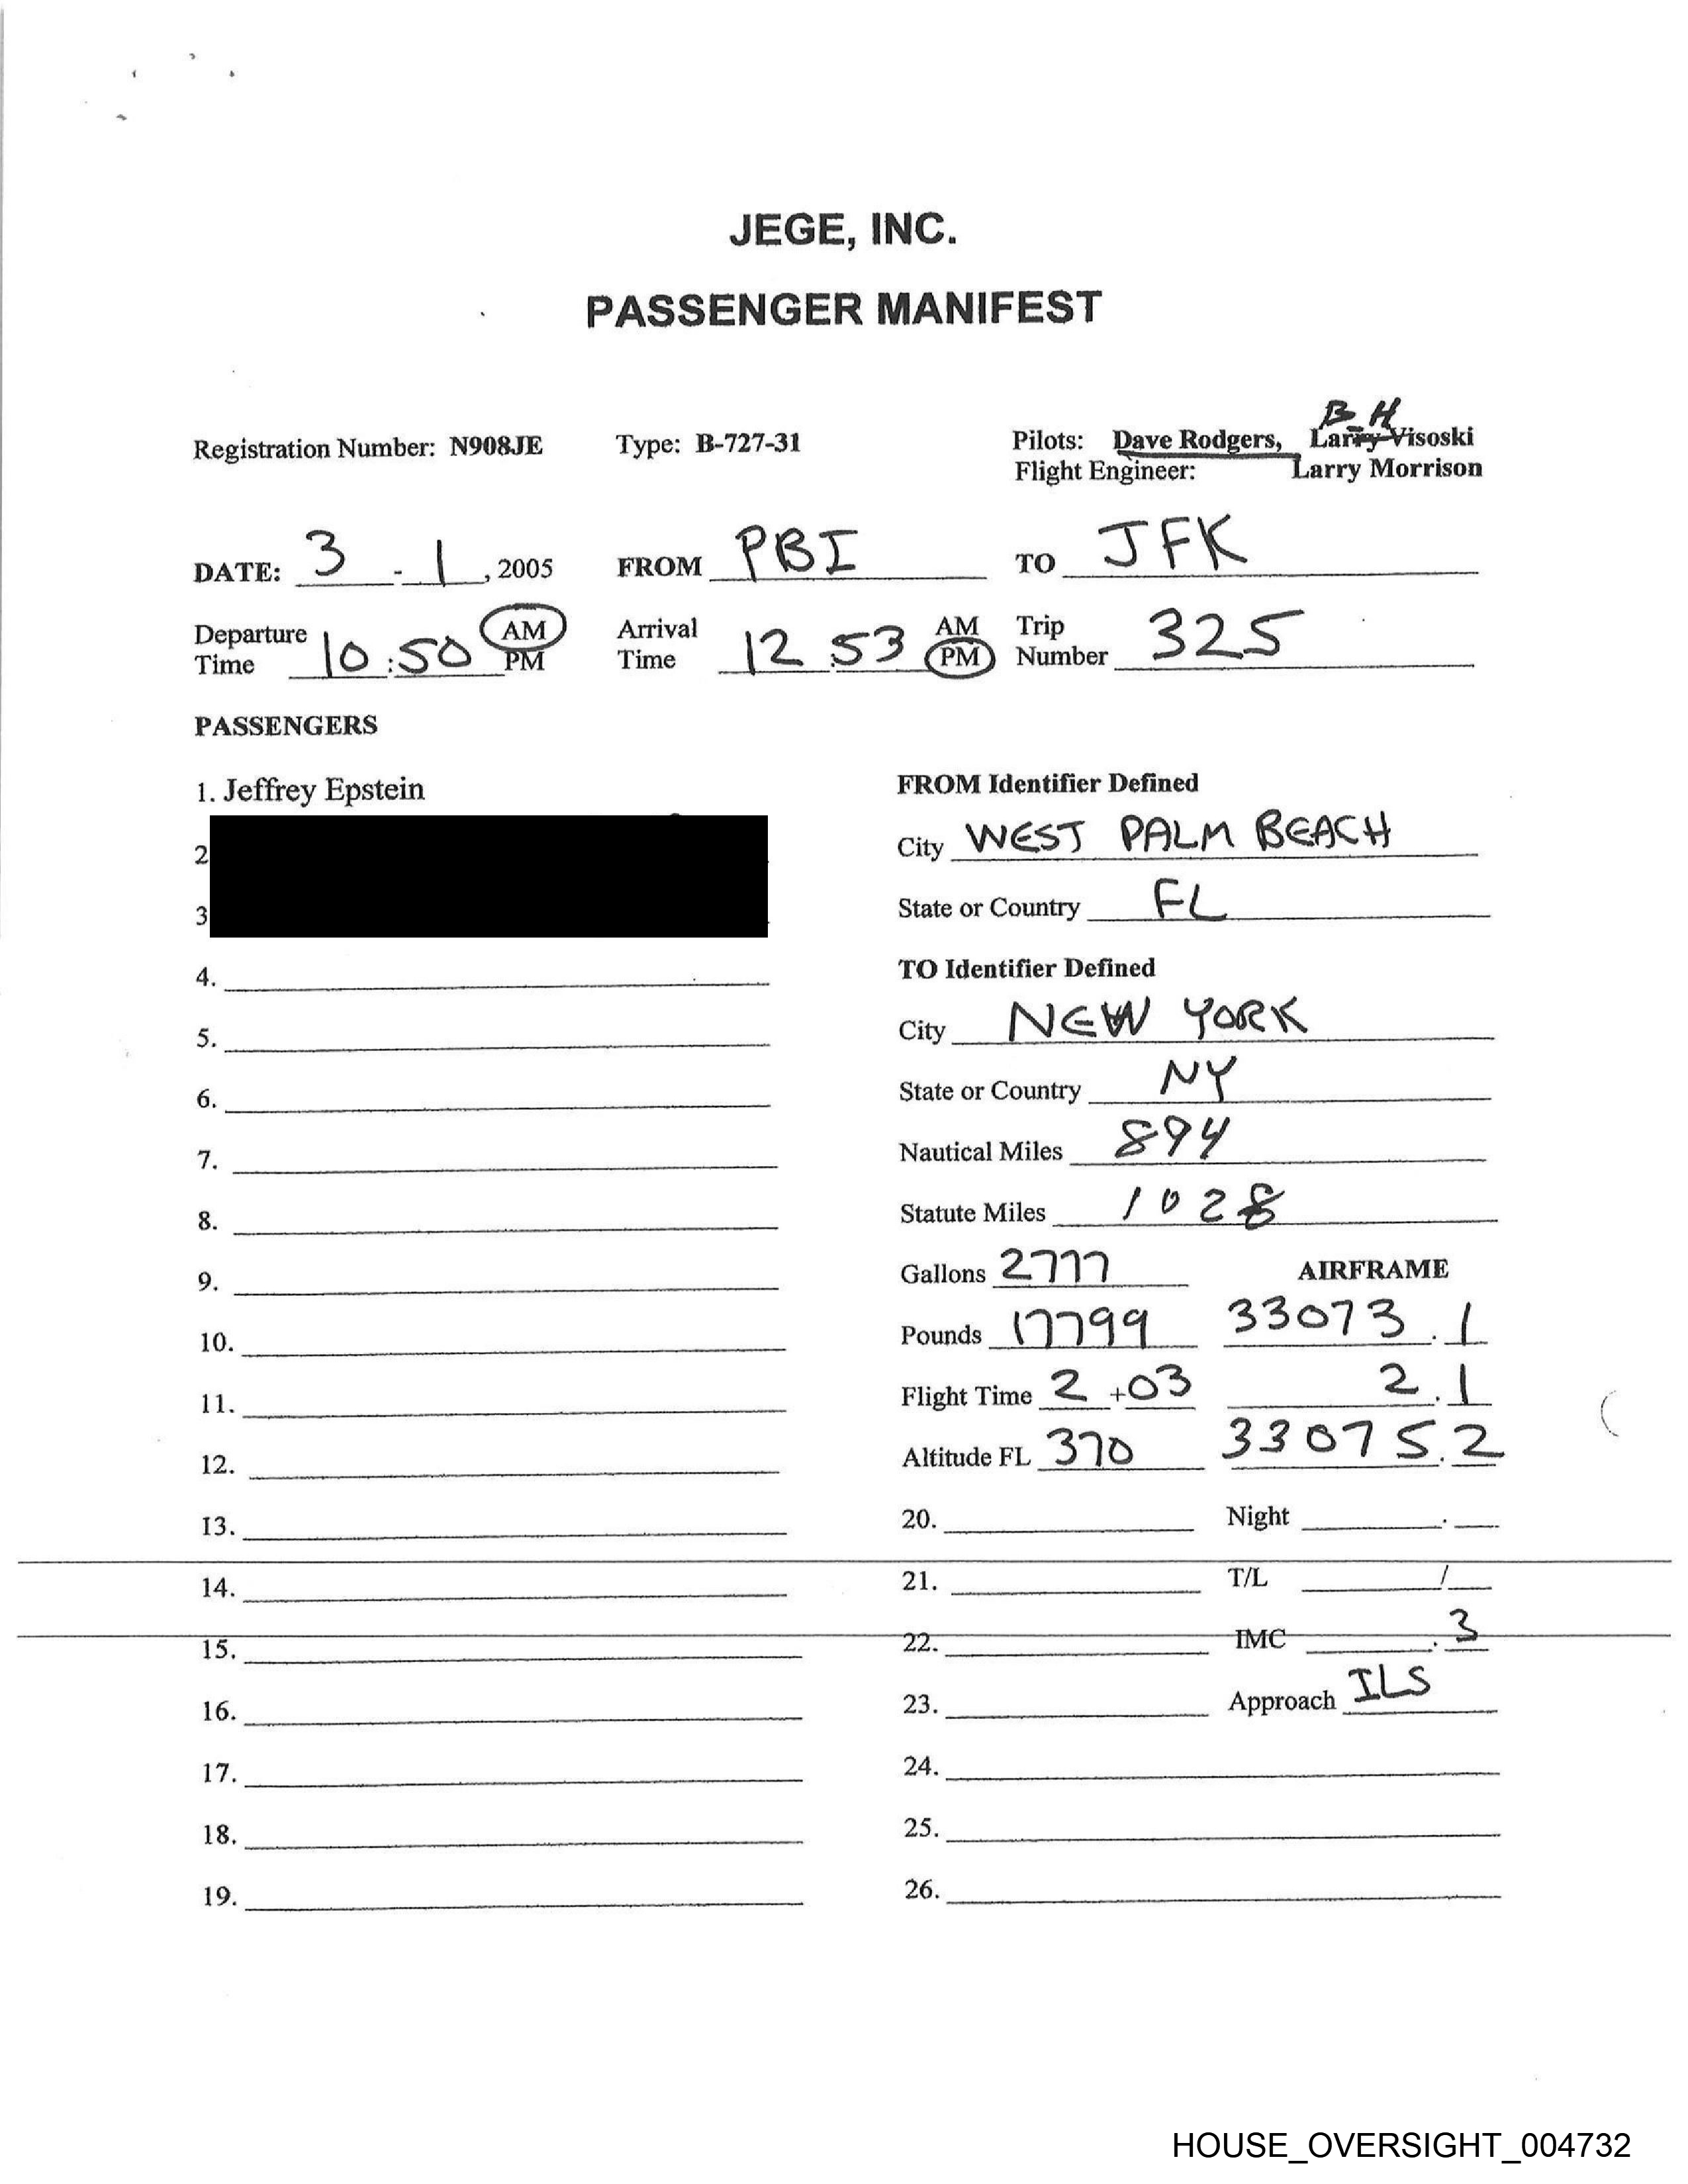 JEGE, INC.
PASSENGER MANIFEST
B H
Registration Number: N908JE Type: B-727-31 Pilots: Dave Rodgers, Larry Visoski
Flight Engineer: Larry Morrison
DATE: 3 - 1, 2005 FROM PBI TO JFK
Departure Time 10:50 AM PM Arrival Time 12:53 AM PM Trip Number 325
PASSENGERS
1. Jeffrey Epstein FROM Identifier Defined
2 City WEST PALM BEACH
3 State or Country FL
4. TO Identifier Defined
5. City NEW YORK
6. State or Country NY
7. Nautical Miles 894
8. Statute Miles 1028
9. Gallons 2777 AIRFRAME
10. Pounds 17799 33073.1
11. Flight Time 2+03 2.1
12. Altitude FL 370 33075.2
13. 20. Night .
14. 21. T/L /
15. 22. IMC .3
16. 23. Approach ILS
17. 24.
18. 25.
19. 26.
HOUSE_OVERSIGHT_004732